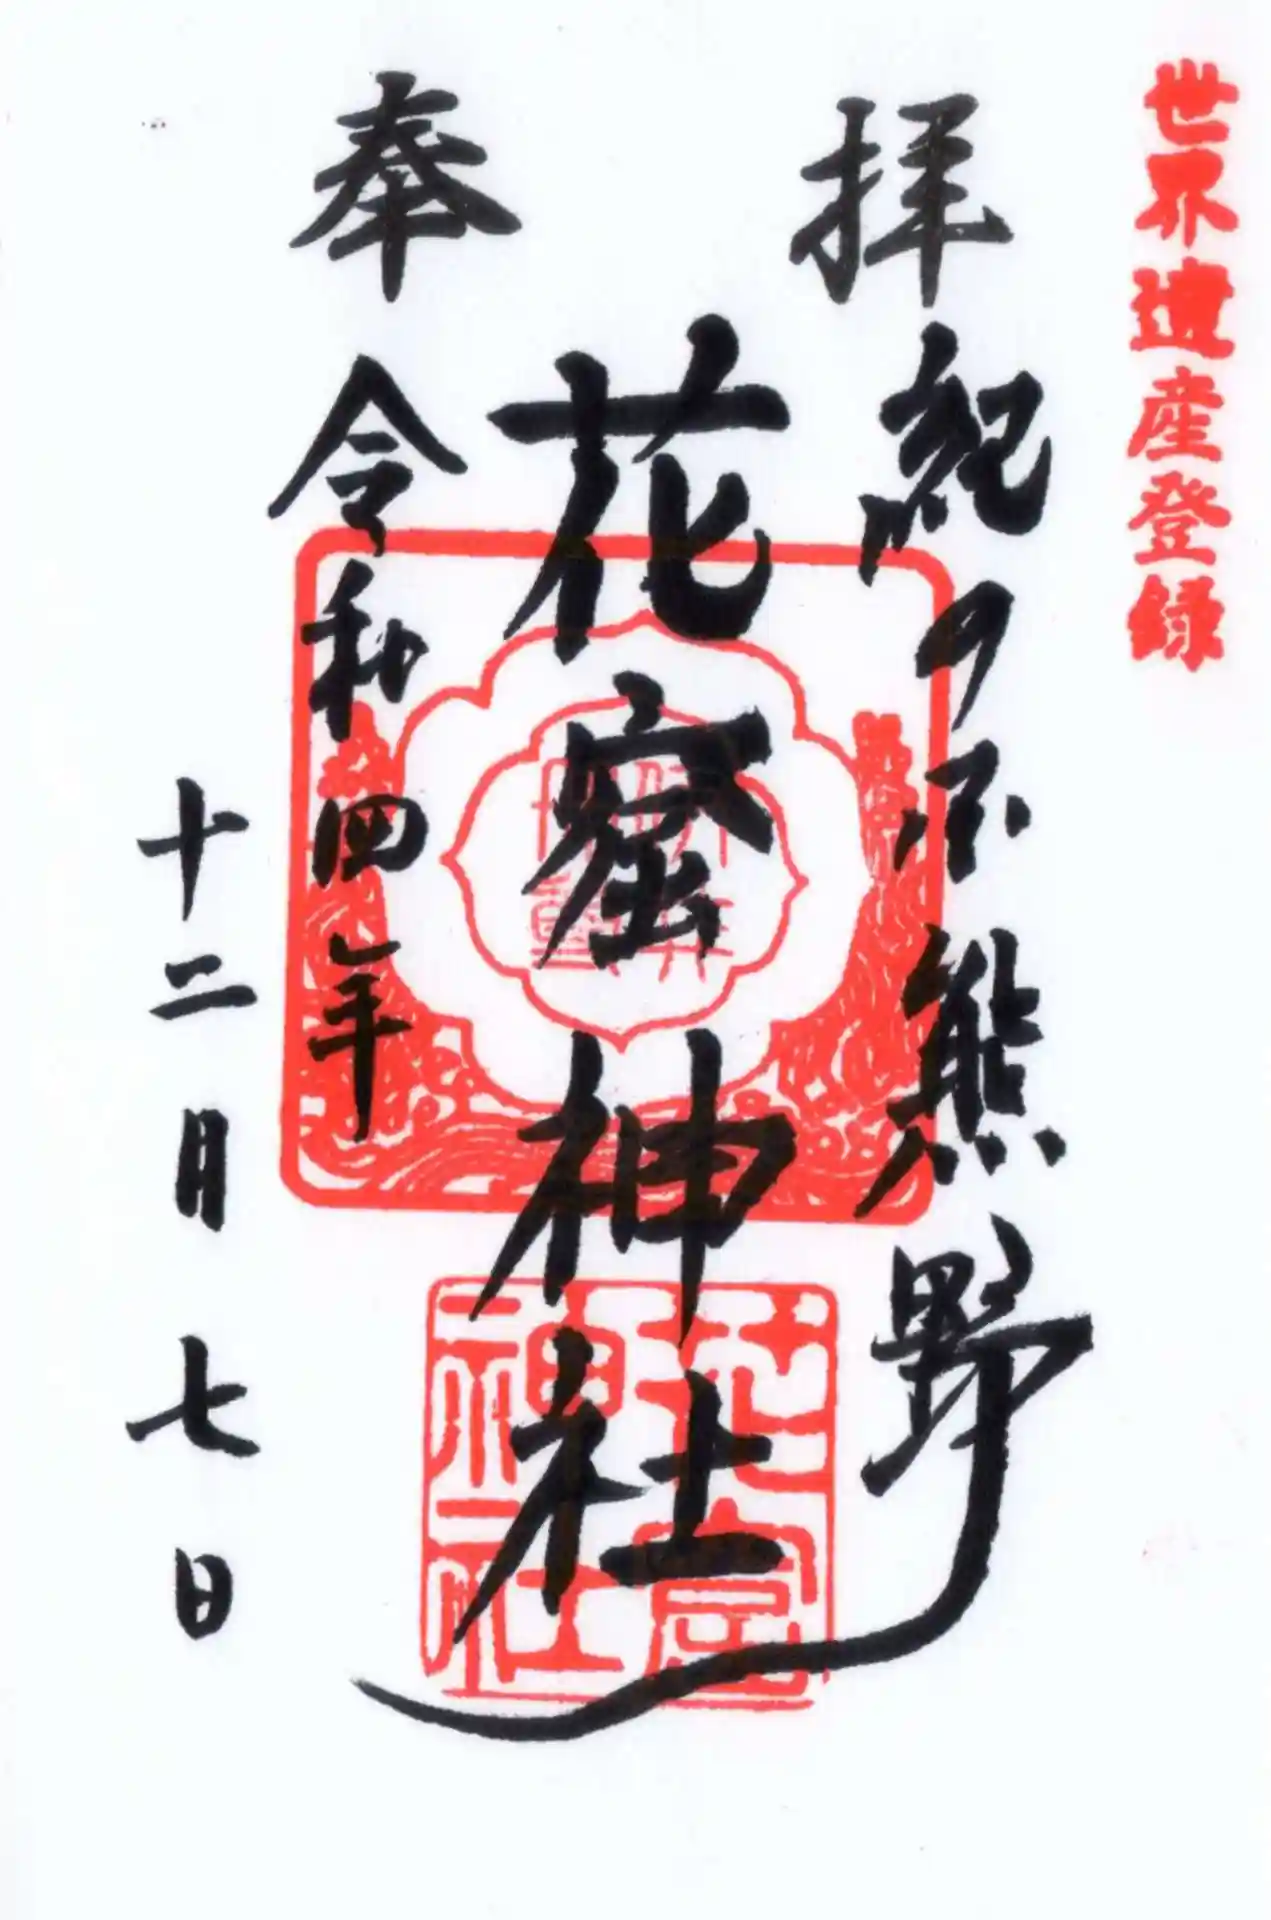 世界遺産登録
拝
紀の国熊野
花窟神社
奉
令和四年
十二月七日
花窟神社